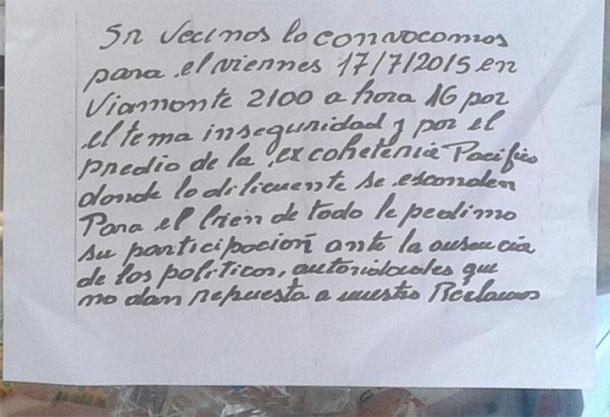 Sr Vecinos lo convocomos
para el viernes 17/7/2015 en
Viamonte 2100 a hora 16 por
el tema inseguridad y por el
predio de la ex coheteria Pacifico
donde lo dilicuente se esconden
Para el bien de todo le pedimo
su participacion ante la ausencia
de los politicos, autoridades que
no dan repuesta a nuestro Reclamos